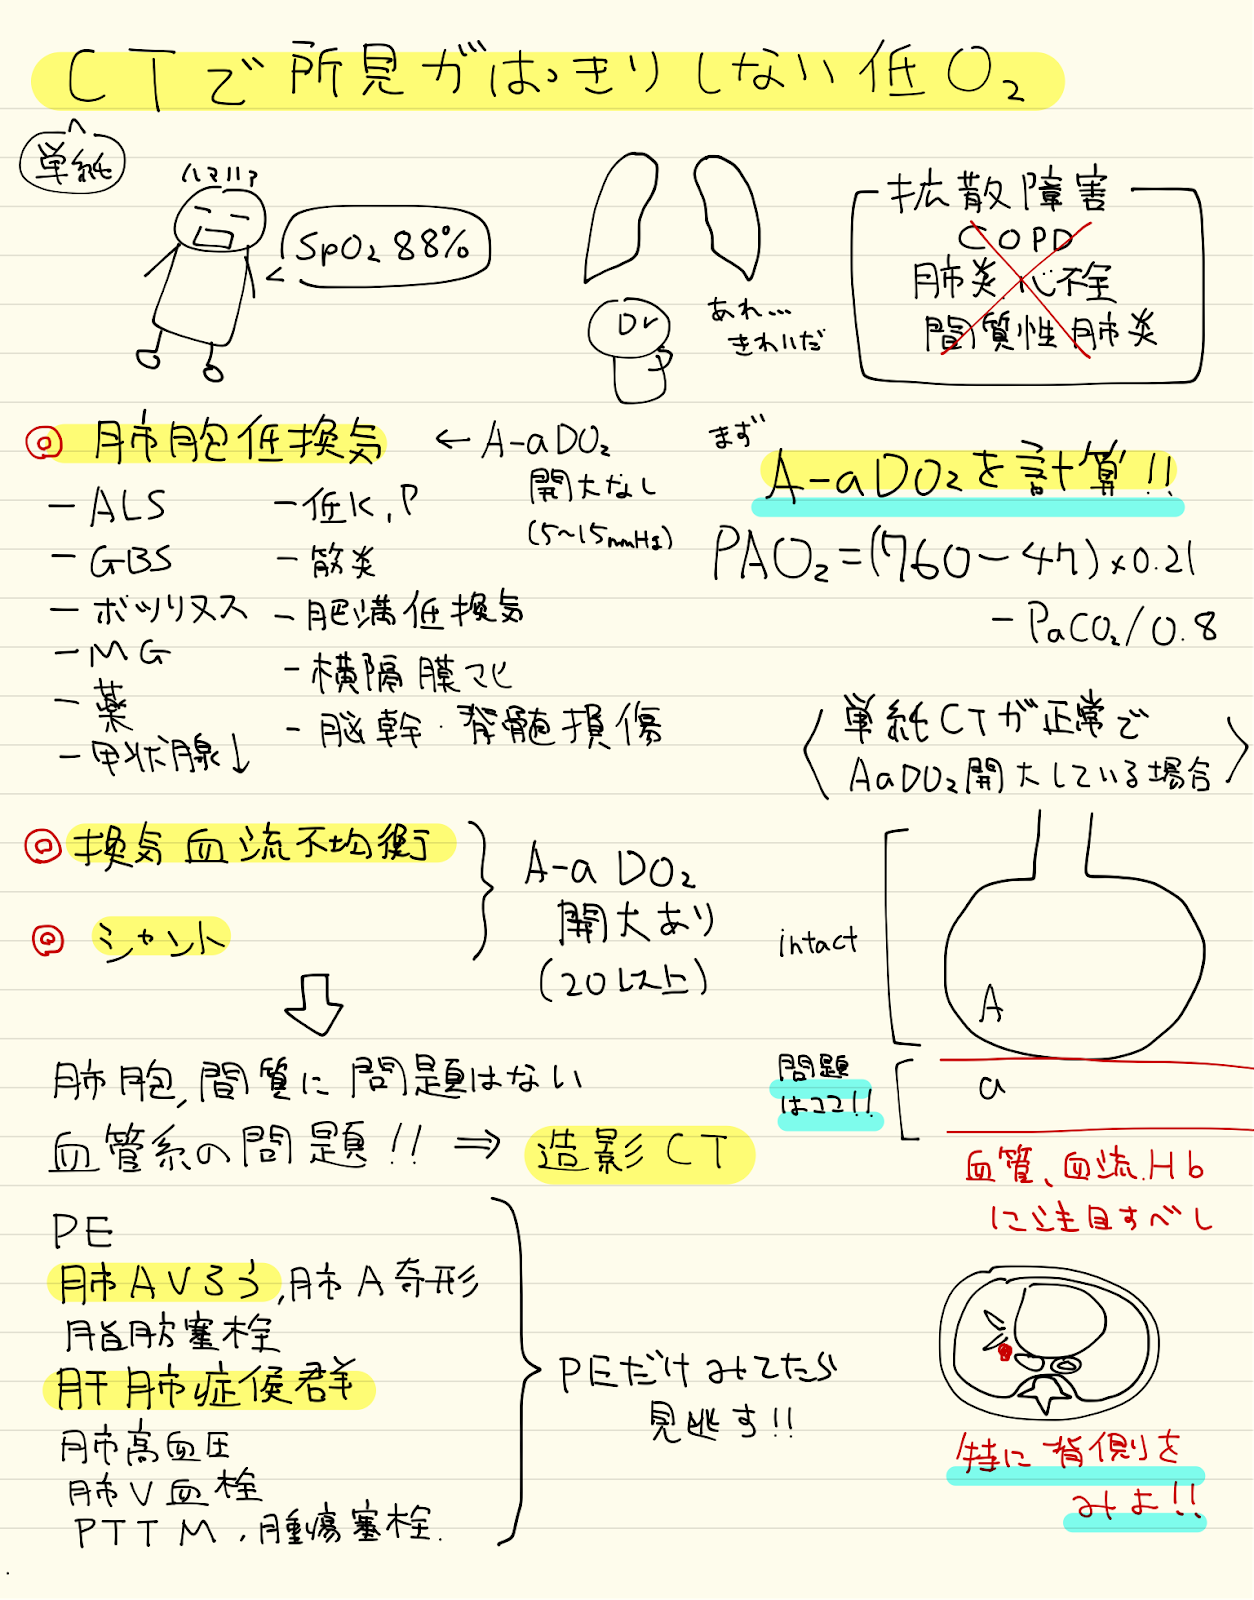 CTで所見がはっきりしない低O₂
単純
ハァハァ
SpO₂ 88%
Dr
あれ...
きれいだ
拡散障害
COPD
肺炎、心不全
間質性肺炎
◎ 肺胞低換気 ← A-aDO₂
開大なし
(5~15mmHg)
- ALS
- GBS
- ボツリヌス
- MG
- 薬
- 甲状腺↓
- 低K, P
- 筋炎
- 肥満低換気
- 横隔膜マヒ
- 脳幹・脊髄損傷
まず
A-aDO₂を計算!!
PAO₂=(760-47)×0.21
- PaCO₂/0.8
〈単純CTが正常で
AaDO₂開大している場合〉
◎ 換気血流不均衡
◎ シャント
A-a DO₂
開大あり
(20以上)
intact
A
問題
はココ!!
a
血管、血流、Hb
に注目すべし
肺胞,間質に問題はない
血管系の問題!! ⇒ 造影CT
PE
肺AVろう,肺A奇形
脂肪塞栓
肝肺症候群
肺高血圧
肺V血栓
PTTM、腫瘍塞栓.
PEだけみてたら
見逃す!!
特に背側を
みよ!!